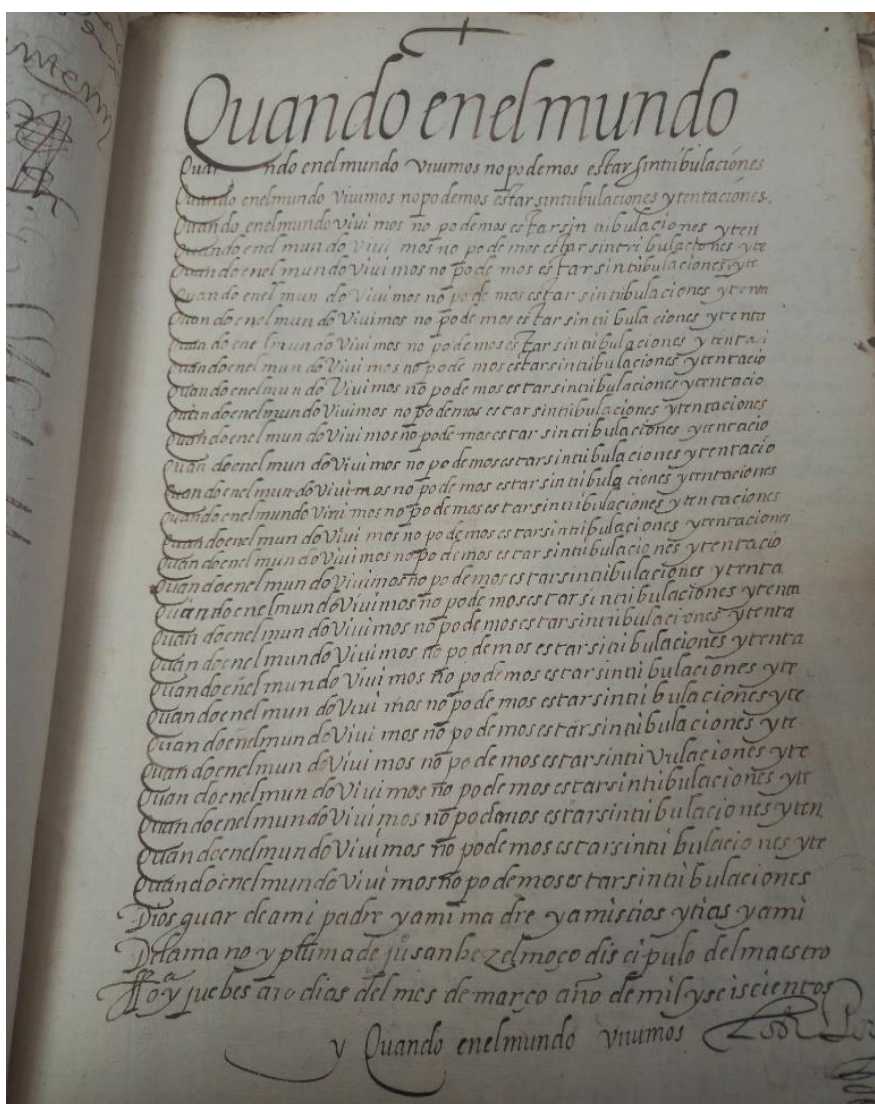 Quando enel mundo
Quan ndo enel mundo viuimos no podemos estar sin tribulaciones
Quando enel mundo viuimos no podemos estar sin tribulaciones y tentaciones.
Quando enel mundo vivi mos no podemos estar sin tribulaciones y ten
Quando enel mundo Vivi mos no podemos estar sin tri bulaciones y te
Quando enel mundo Vivimos no podemos estar sin tribulaciones y te
Quando enel mundo Vivimos no podemos estar sin tribulaciones y tenta
Quando enel mundo Viuimos no podemos estar sin tri bulaciones y tenta
Quando ene l mundo Viui mos no podemos estar sin tribulaciones y tenta i
Quando enel mundo Viuimos no podemos estar sin tribulaciones y tentacio
Quando enel mundo Vivimos no podemos estar sin tribulaciones y tentacio
Quando enel mundo Vivimos no podemos estar sin tribulaciones y tentaciones
Quando enel mundo Vivimos no podemos estar sin tribulaciones y tentacio
Quan do enel mundo Vivimos no podemos estar sin tribulaciones y tentacio
Quando enel mundo Vivimos no podemos estar sin tribulaciones y tentaciones
Quando enel mundo Vivi mos no podemos estar sin tribulaciones y tentaciones
Quando enel mundo Vivi mos no podemos estar sin tribulaciones y tentaciones
Quando enel mundo Vivimos no podemos estar sin tribulaciones y tentacio
Quando enel mundo Vivimos no podemos estar sin tribulaciones y tenta
Quando enel mundo Vivimos no podemos estar sin tribulaciones y tenta
Quando enel mundo Vivimos no podemos estar sin tribulaciones y tenta
Quando enel mundo Viuimos no podemos estar sin tribulaciones y tenta
Quando enel mundo Viui mos no podemos estar sin tribulaciones y te
Quando enel mundo Viui mos no podemos estar sin tri bulaciones y te
Quando enel mundo Viui mos no podemos estar sin tribulaciones y te
Quando enel mundo Vivi mos no podemos estar sin tri Vulaciones y te
Quando enel mundo Vivi mos no podemos estar sin tribulaciones y te
Quando enel mundo Viui mos no podemos estar sin tri bulaciones y ten
Quando enel mundo Viuimos no podemos estar sin tri bulacio nes y te
Quando enel mundo Viui mos no podemos estar sin tri bulaciones
Dios guar de ami padre y ami ma dre y amis tios y tias y ami
De la mano y pluma de juº sanhez el moço dis ci pulo del maestro
oy juebes a 10 dias del mes de março año de mil y seiscientos
y Quando enel mundo viuimos